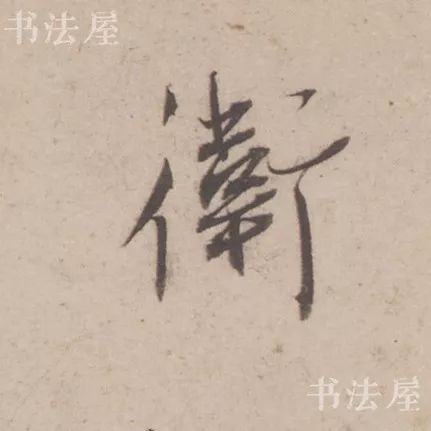 书法屋
衛
书法屋